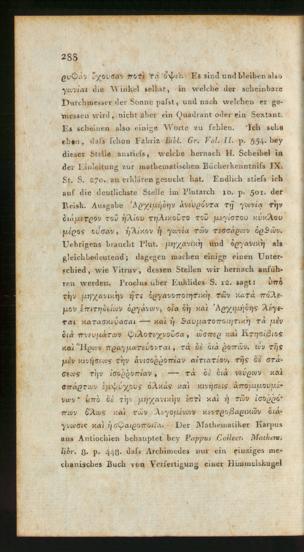 288
ρυφὰν ἔχουσαν ποτὶ τὰ ὄψει. Es sind und bleiben also
γωνίαι die Winkel selbst, in welche der scheinbare
Durchmesser der Sonne paſst, und nach welchen er ge-
messen wird, nicht über ein Quadrant oder ein Sextant.
Es scheinen also einige Worte zu fehlen. Ich sahe
eben, daſs schon Fabriz Bibl. Gr. Vol. II. p. 554. bey
dieser Stelle anstieſs, welche hernach H. Scheibel in
der Einleitung zur mathematischen Bücherkenntniſs IX.
St. S. 270. zu erklären gesucht hat. Endlich stieſs ich
auf die deutlichste Stelle im Plutarch 10. p. 501. der
Reisk. Ausgabe Ἀρχιμήδην ἀνευρόντα τῇ γωνίᾳ τὴν
διάμετρον τοῦ ἡλίου τηλικοῦτο τοῦ μεγίστου κύκλου
μέρος οὖσαν, ἡλίκον ἡ γωνία τῶν τεσσάρων ὀρθῶν.
Uebrigens braucht Plut. μηχανικὴ und ὀργανικὴ als
gleichbedeutend; dagegen machen einige einen Unter-
schied, wie Vitruv, dessen Stellen wir hernach anfüh-
ren werden. Proclus über Euklides S. 12. sagt: ὑπὸ
τὴν μηχανικὴν ἥτε ὀργανοποιητικὴ τῶν κατὰ πόλε-
μον ἐπιτηδείων ὀργάνων, οἷα δὴ καὶ Ἀρχιμήδης λέγε-
ται κατασκεύασαι — καὶ ἡ θαυματοποιητικὴ τὰ μὲν
διὰ πνευμάτων φιλοτεχνοῦσα, ὥσπερ καὶ Κτησίβιος
καὶ Ἥρων πραγματεύονται, τὰ δὲ διὰ ῥοπῶν, ὧν τῆς
μὲν κινήσεως τὴν ἀνισορροπίαν αἰτιατέον, τῆς δὲ στά-
σεως τὴν ἰσορροπίαν, — τὰ δὲ διὰ νεύρων καὶ
σπάρτων ἐμψύχους ὁλκὰς καὶ κινήσεις ἀπομιμουμέ-
νων· ὑπὸ δὲ τὴν μηχανικήν ἐστι καὶ ἡ τῶν ἰσορρό-
πων ὅλως καὶ τῶν λεγομένων κεντροβαρικῶν διά-
γνωσις καὶ ἡ σφαιροποιΐα. Der Mathematiker Karpus
aus Antiochien behauptet bey Pappus Collect. Mathem.
libr. 8. p. 448. daſs Archimedes nur ein einziges me-
chanisches Buch von Verfertigung einer Himmelskugel